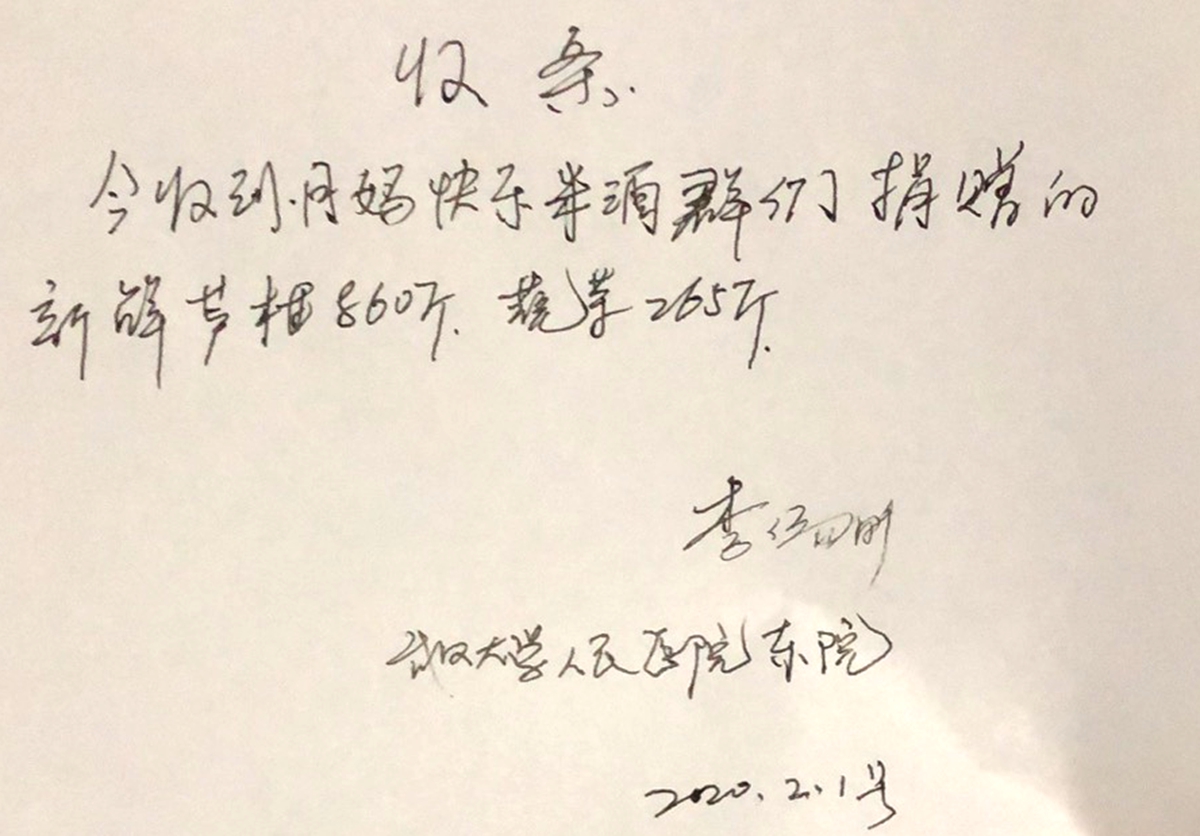 收条
今收到月妈快乐米酒群们捐赠的
新鲜芦柑860斤.蔬菜265斤.
李
武汉大学人民医院东院
2020.2.1号